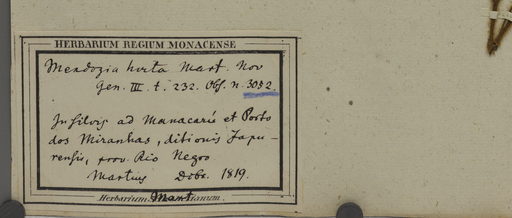 HERBARIUM REGIUM MONACENSE
Mendozia hirta Mart. Nov
Gen. III. t. 232. Obs. n. 3052.
In silvis ad Manacarú et Porto
dos Miranhas, ditionis Japu-
rensis, prov. Rio Negro
Martius Dobr. 1819.
Herbarium Martianum.